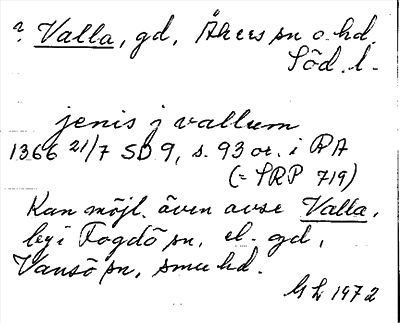 ? Valla, gd, Åkers sn o. hd.
Söd. l.
jenis j vallum
1366 21/7 SD 9, s. 93 or. i RA
(= SRP 719)
Kan möjl. även avse Valla,
by i Fogdö sn, el. gd,
Vansö sn, smu hd.
1972